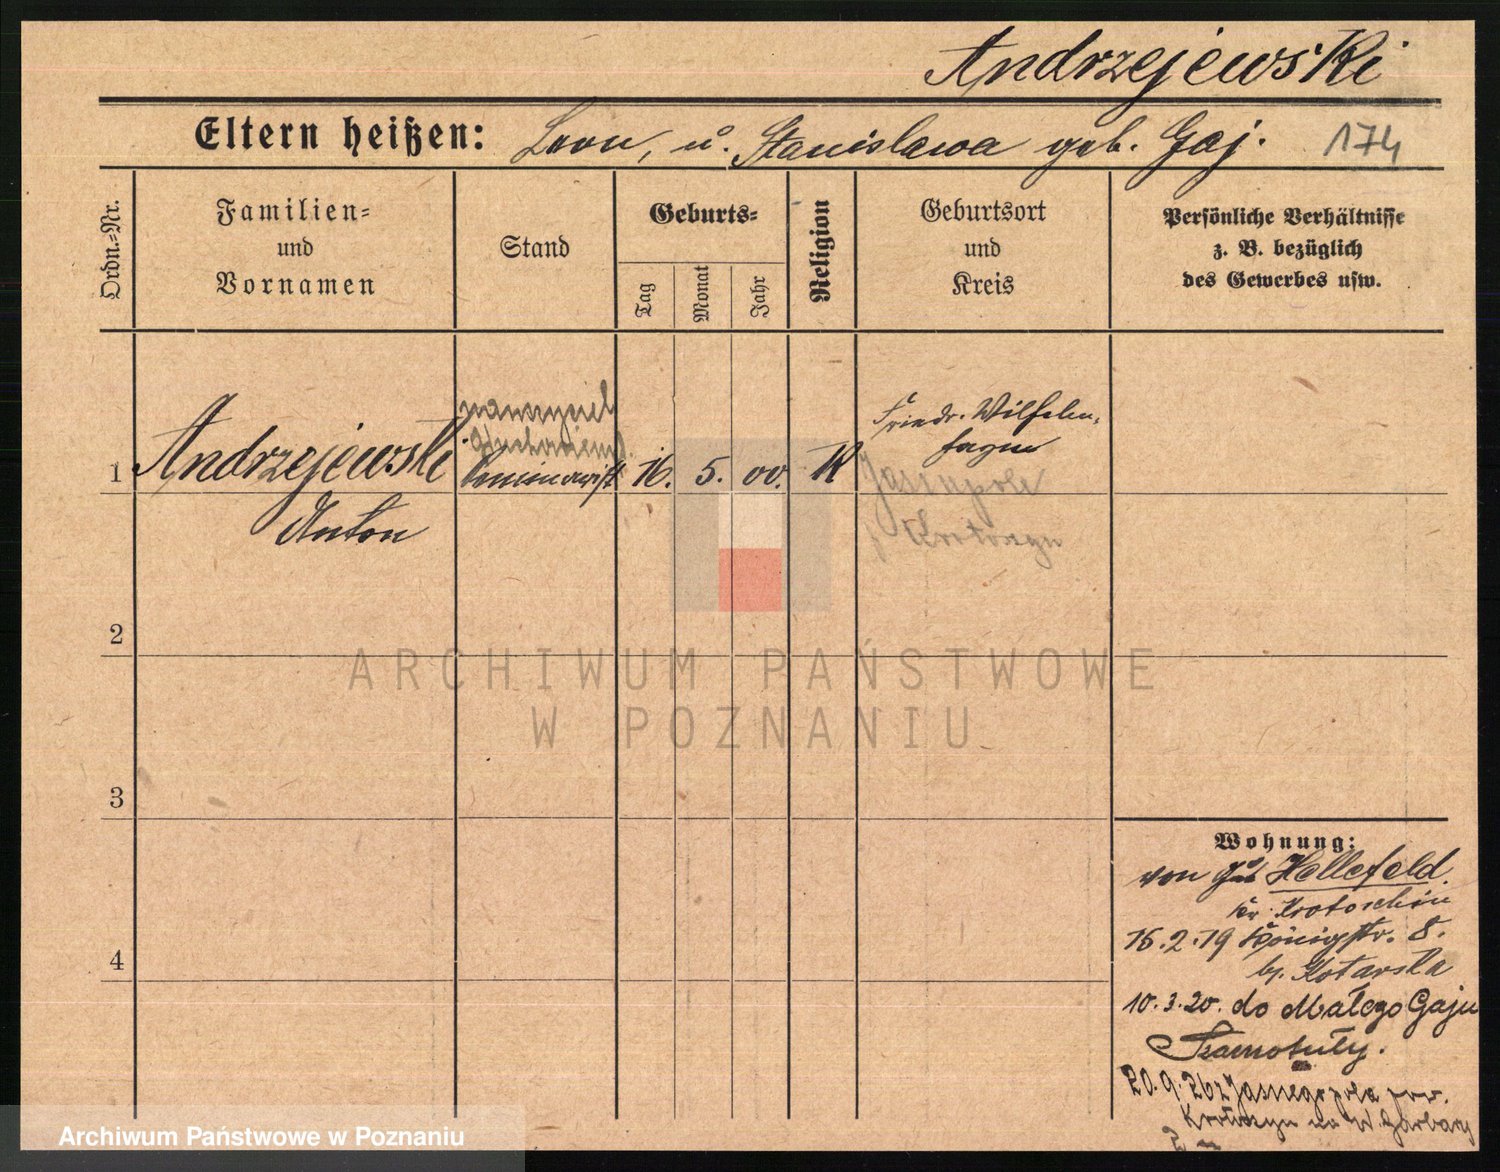 Andrzejewski
Eltern heißen: Leon, u. Stanislawa geb. Gaj. 174
Ordn.=Nr.
Familien=
und
Vornamen
Stand
Geburts=
Tag
Monat
Jahr
Religion
Geburtsort
und
Kreis
Persönliche Verhältnisse
z. B. bezüglich
des Gewerbes usw.
1
Andrzejewski
Anton
nauczyciel
Seminarist
16. 5. 00. K
Friedr. Wilhelm-
hagen
Jasnepole
Krotoszyn
2
3
4
Wohnung:
von Gut Hellefeld.
Kr. Krotoschin
15.2.19 Königstr. 8.
b. Kotarska
10.3.20. do Małego Gaju
Szamotuły.
20.9.26 z Jasnegopola pow.
Krotoszyn na W. Garbary
ARCHIWUM PAŃSTWOWE
W POZNANIU
Archiwum Państwowe w Poznaniu